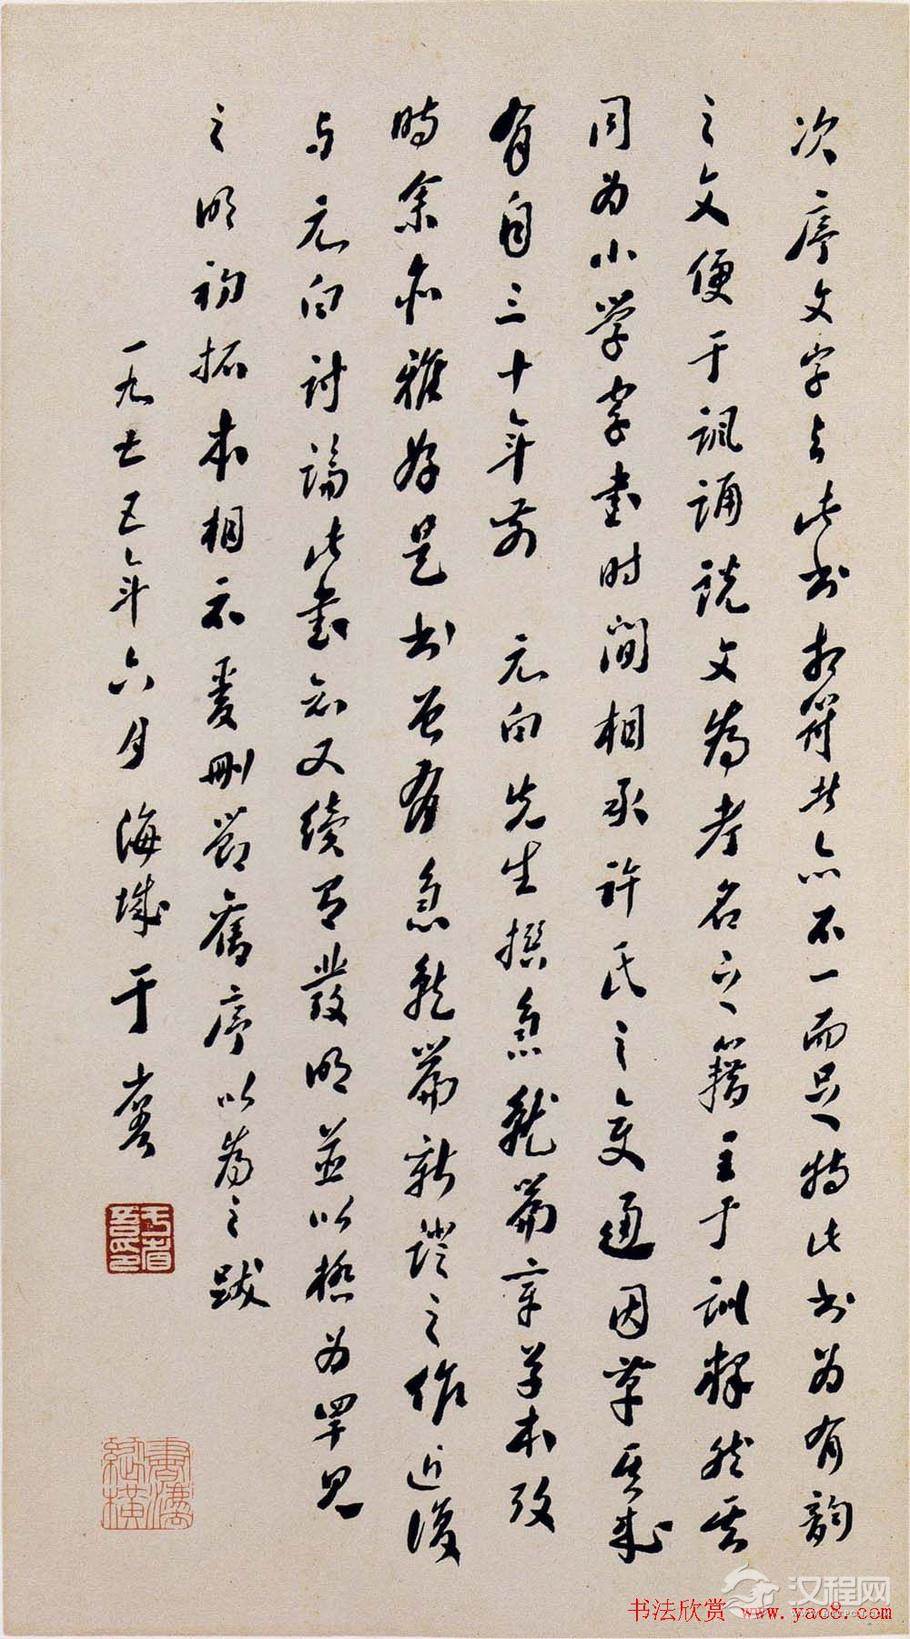 次序文字与此书相符者亦不一而足特此书为有韵
之文便于讽诵说文为考名之籍主于训释然其
同为小学字书时间相承许氏之变通因革其来
有自三十年前 元白先生撰急就篇章草本考
时余亦雅好是书曾有急就篇新证之作近复
与元白讨论此书知又续有发明並以极为罕见
之明初拓本相示爰删节旧序以为之跋
一九七五年六月海城于省吾
于省吾印
书法欣赏 www.yac8.com
汉程网